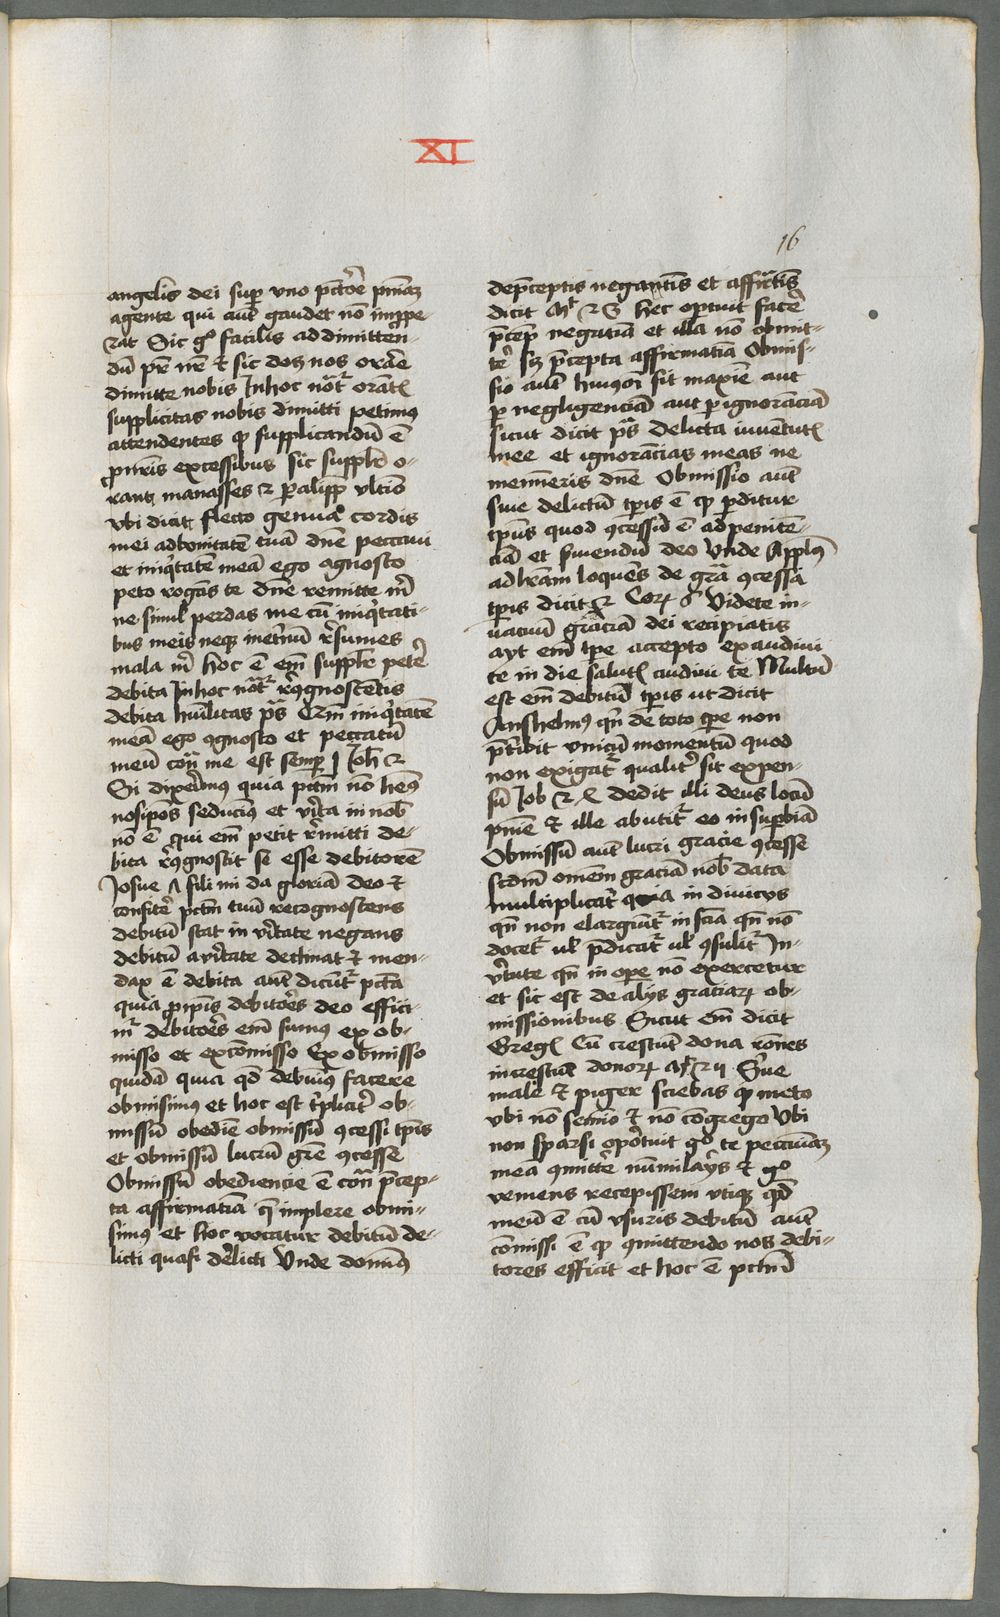 XI
16
angelis dei sup uno pctōre pnīaȝ
agente qui aut gaudet nō impe-
rat Sic gͦ facilis ad dimitten-
dū pr̄ nr̄ & sic dos nos orare
dimitte nobis In hoc orātꝭ
supplicitas nobis dimitti petimꝰ
attendentes ꝙ supplicandū ē
excessibus sic o-
manasses ultīo
vbi dicit flecto genua cordis
mei ad bonitatē tuā dn̄e peccaui
et iniqͥtatē meā ego agnosco
peto rogās te dn̄e remitte mͥ
ne simul perdas me cū iniqͥtati-
bus meis neqꝫ inet̄nū r̄sumes
mala mͥ hoc ē em̄ petē
debita In hoc r̄ꝯgnoscētis
debita hūilitas pˢ Qm̄ iniqͥtatē
meā ego ꝯgnosco et peccatū
meū con̄ me est semp I Joh
Si dixerīmꝰ quia pctm̄ nō hemꝰ
nos ip̄os seducimꝰ et vīta in nob
nō ē qui em̄ petit r̄mitti de-
bita r̄ꝯgnoscit se esse debitorē
Josue fili mi da gloriā deo &
confitē pctm̄ tuū recognoscens
debitū stat in vītate negans
debitū a vītate declinat & men-
dax ē debita aut dicūtᷣ pctā
quia debitōes deo effici-
mᷣ debitōes em̄ sumꝰ ex ob-
misso et ex cōmisso Ex obmisso
quidā quia qd̄ debuīꝰ facere
obmisimus et hoc est tͥplicit̄ ob-
missū obediē obmissū ꝯcessi tp̄is
et obmissū lucrū grē ꝯcesse
Obmissū obediencie ē con̄ p̄cep-
ta affirmatiā q̄ implere obmi-
simꝰ et hoc vocatur debitū de-
licti quasi dr̄licti Unde domīꝰ
de p̄ceptis negātīs et affirtīs
dicit hec oportuit facē
p̄cep negatiā et illa nō obmit-
tē sꝫ p̄cepta affirmatiā Obmis-
sio aut huiꝯōi sit maxīe aut
p negligenciā aut p ignorāciā
sicut dicit pˢ delicta iuventutꝭ
mee et ignorācias meas ne
memīeris dn̄e Obmissio aut
siue delictū tp̄is ē ꝙ pditur
tp̄us quod ꝯcessū ē ad penitē-
ciā et deo Unde Applꝰ
loquēs de grā ꝯcessa
tp̄is dicit Corꝝ Videte in
vacuū graciā dei recipiatis
ayt em̄ tpe accepto exaudiui
te in die salutꝭ audiui te Multū
est em̄ debitū tp̄is ut dicit
Anshelmꝰ qn̄ de toto tpe non
p̄tibit unicū momentū quod
non exigatᷣ qualit̄ sit expen-
sū Job dedit illi deus locū
pnīe & ille abutitᷣ eo in supbiā
Obmissū aut lucri gracie ꝯcesse
scdm̄ omem graciā nob data
multiplicatᷣ quia in diuicys
qn̄ non elargiūtᷣ in scīa qn̄ nō
docetᷣ ul p̄dicatᷣ ul ꝯsulitᷣ In
vtute qn̄ in ope nō exercetur
et sic est de alys graciarꝝ ob-
missionibus Sicut em̄ dicit
Gregꝰ Cū crescūt dona rōnes
increscūt donorꝝ Sue
male & piger sciebas ꝙ meto
vbi nō semīo & nō cōgrego Ubi
non sparsi opōtuit gͦ te pecuniaȝ
meā ꝯmittē nūmilays &
veniens recepissem utiqꝫ qd̄
meū ē cū usuris debitū aut
cōmissi ē ꝙ ꝯmittendo nos debi-
tores efficit et hoc ē pctm̄